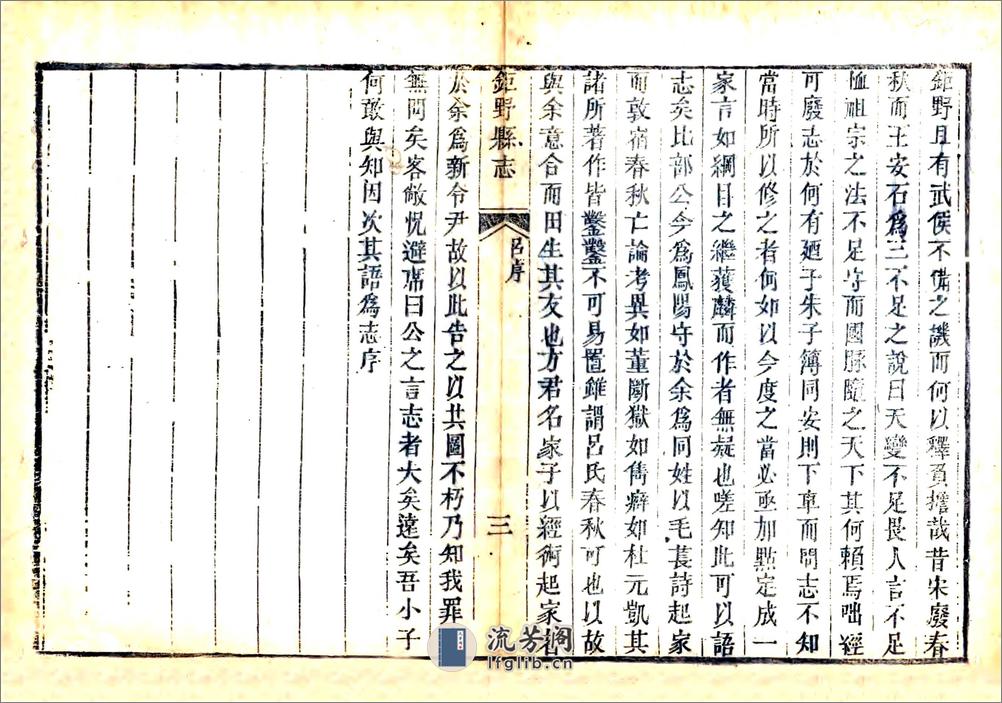 鉅野且有武侯不備之譏而何以釋負擔哉昔宋廢春
秋而王安石爲三不足之說曰天變不足畏人言不足
恤祖宗之法不足守而國脉隨之天下其何賴焉咄經
可廢志於何有廼子朱子簿同安則下車而問志不知
當時所以修之者何如以今度之當必亟加點定成一
家言如綱目之繼獲麟而作者無疑也嗟知此可以語
志矣比部公今爲鳳陽守於余爲同姓以毛萇詩起家
而敦宿春秋亡論考異如董斷獄如雋癖如杜元凱其
諸所著作皆鑿鑿不可易置雖謂呂氏春秋可也以故
與余意合而田生其友也方君名家子以經術起家
鉅野縣志
呂序
三
於余爲新令尹故以此告之以共圖不朽乃知我罪
無問矣客敞怳避席曰公之言志者大矣遠矣吾小子
何敢與知因次其語爲志序
流芳閣
lfglib.cn